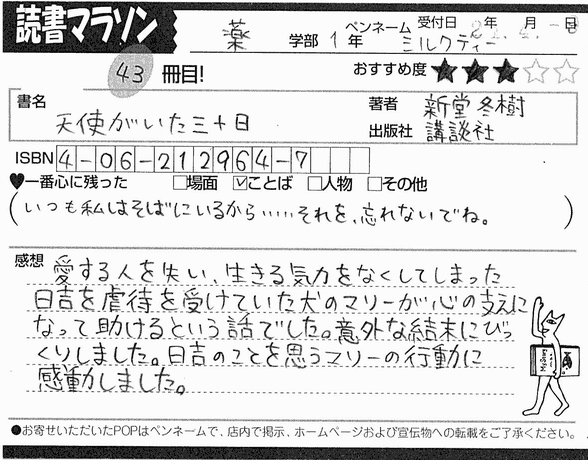 読書マラソン 薬 学部 1年 ペンネーム ミルクティー 受付日 年 月 日
43 冊目! おすすめ度 ★★★☆☆
書名 天使がいた三十日
著者 新堂冬樹
出版社 講談社
ISBN 4-06-212964-7
♥一番心に残った □場面 ☑ことば □人物 □その他
(いつも私はそばにいるから……それを、忘れないでね。)
感想 愛する人を失い、生きる気力をなくしてしまった
日吉を虐待を受けていた犬のマリーが心の支えに
なって助けるという話でした。意外な結末にびっ
くりしました。日吉のことを思うマリーの行動に
感動しました。
●お寄せいただいたPOPはペンネームで、店内で掲示、ホームページおよび宣伝物への転載をご了承ください。